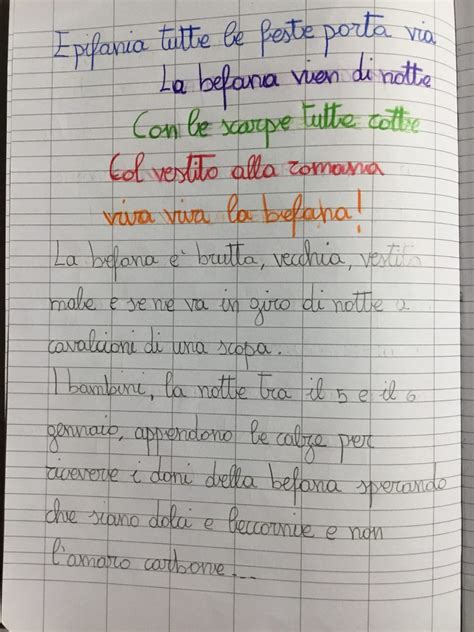 Epifania tutte le feste porta via
La befana vien di notte
Con le scarpe tutte rotte
Col vestito alla romana
viva viva la befana!
La befana è brutta, vecchia, vestita
male e se ne va in giro di notte a
cavalcioni di una scopa.
I bambini, la notte tra il 5 e il 6
gennaio, appendono le calze per
ricevere i doni della befana sperando
che siano dolci e leccornie e non
l'amaro carbone...